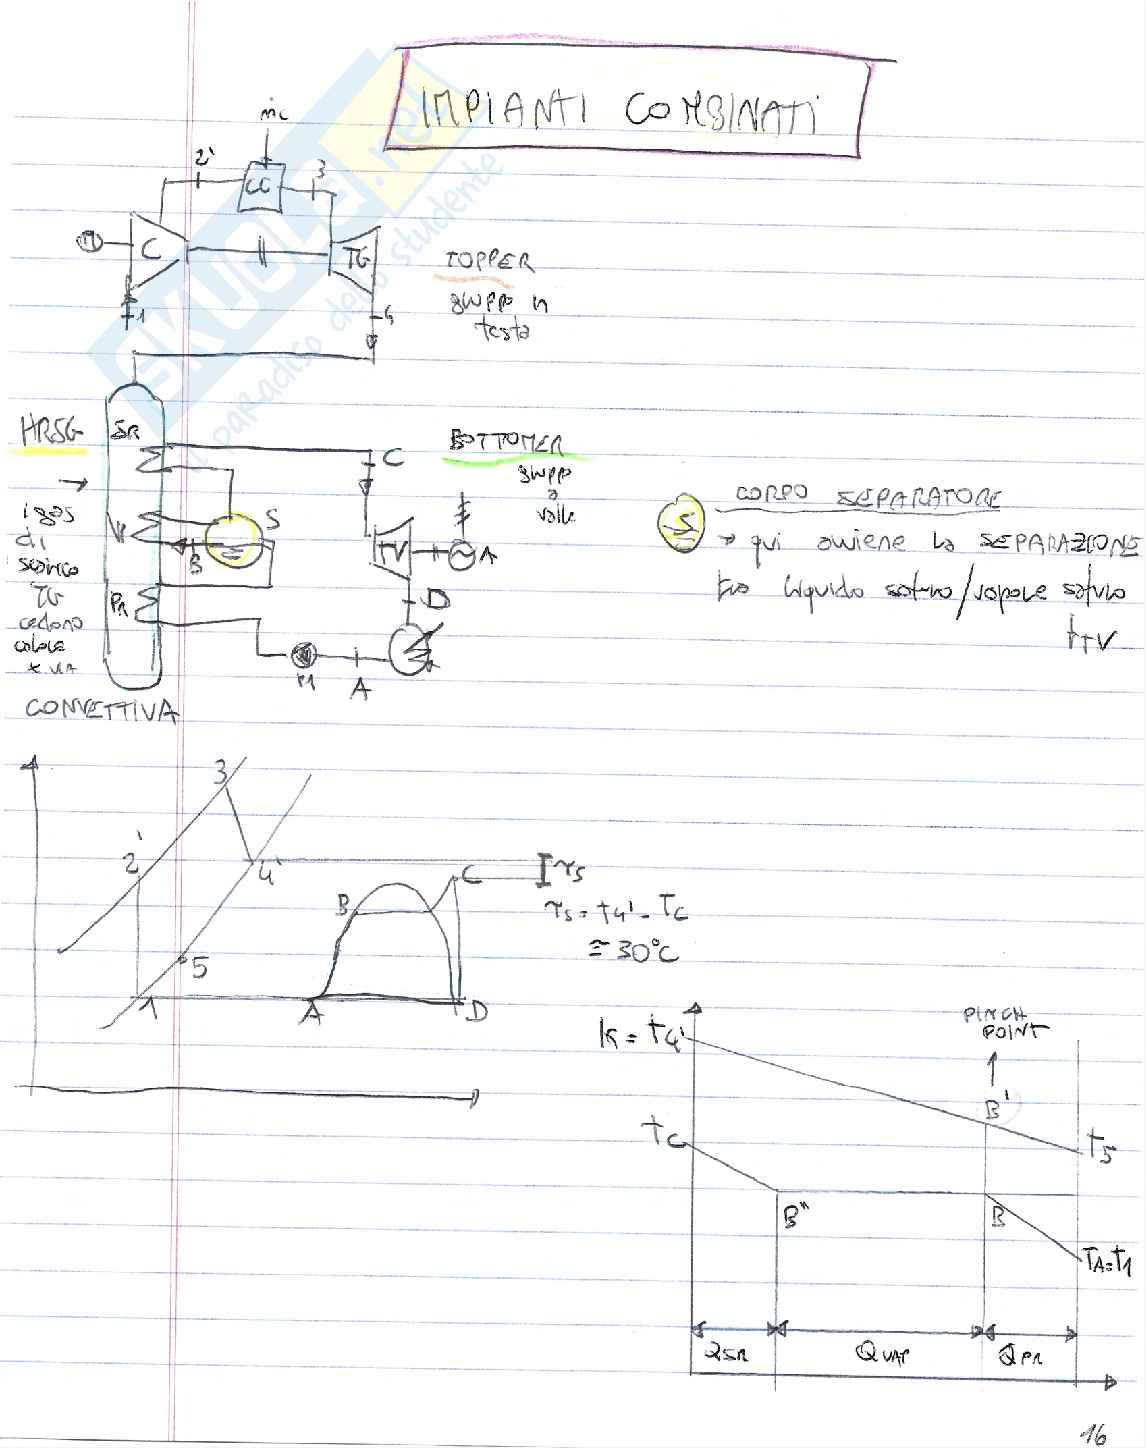 IMPIANTI COMBINATI
ṁc
2'
CC
3
M
C
TG
1
4
TOPPER
gruppo in
testa
HRSG
SR
C
BOTTOMER
gruppo
a
valle
→
i gas
di
scarico
TG
cedono
calore
x VA
V
S
B
TV
A
PR
D
M
A
CONVETTIVA
S
CORPO SEPARATORE
→ qui avviene la SEPARAZIONE
tra liquido saturo/vapore saturo
↓TV
3
2'
4'
C
τs
B
τs = t4' - Tc
≅ 30°C
5
1
A
D
PINCH
POINT
K = t4'
B'
tc
t5
B"
B
TA=t1
QSR
QVAP
QPR
16
SKUOLA.net
il paradiso dello studente